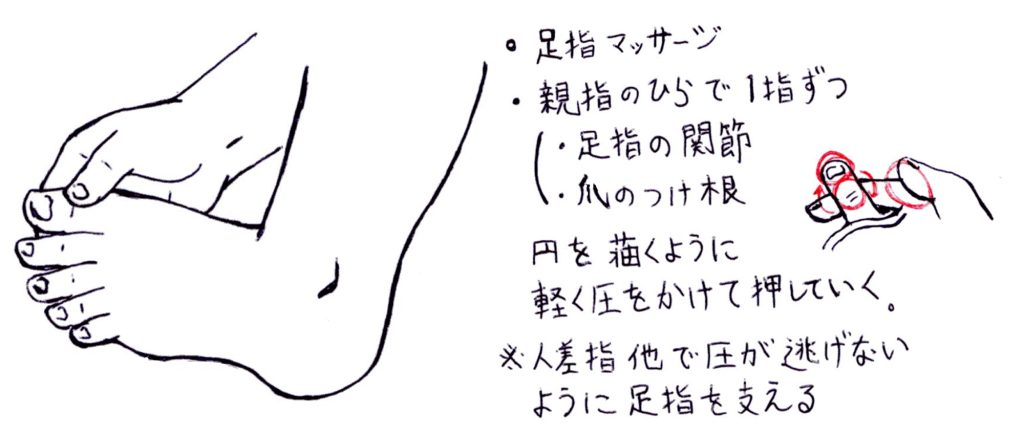 • 足指マッサージ
• 親指のひらで1指ずつ
・足指の関節
・爪のつけ根
円を描くように
軽く圧をかけて押していく。
※人差指他で圧が逃げない
ように足指を支える